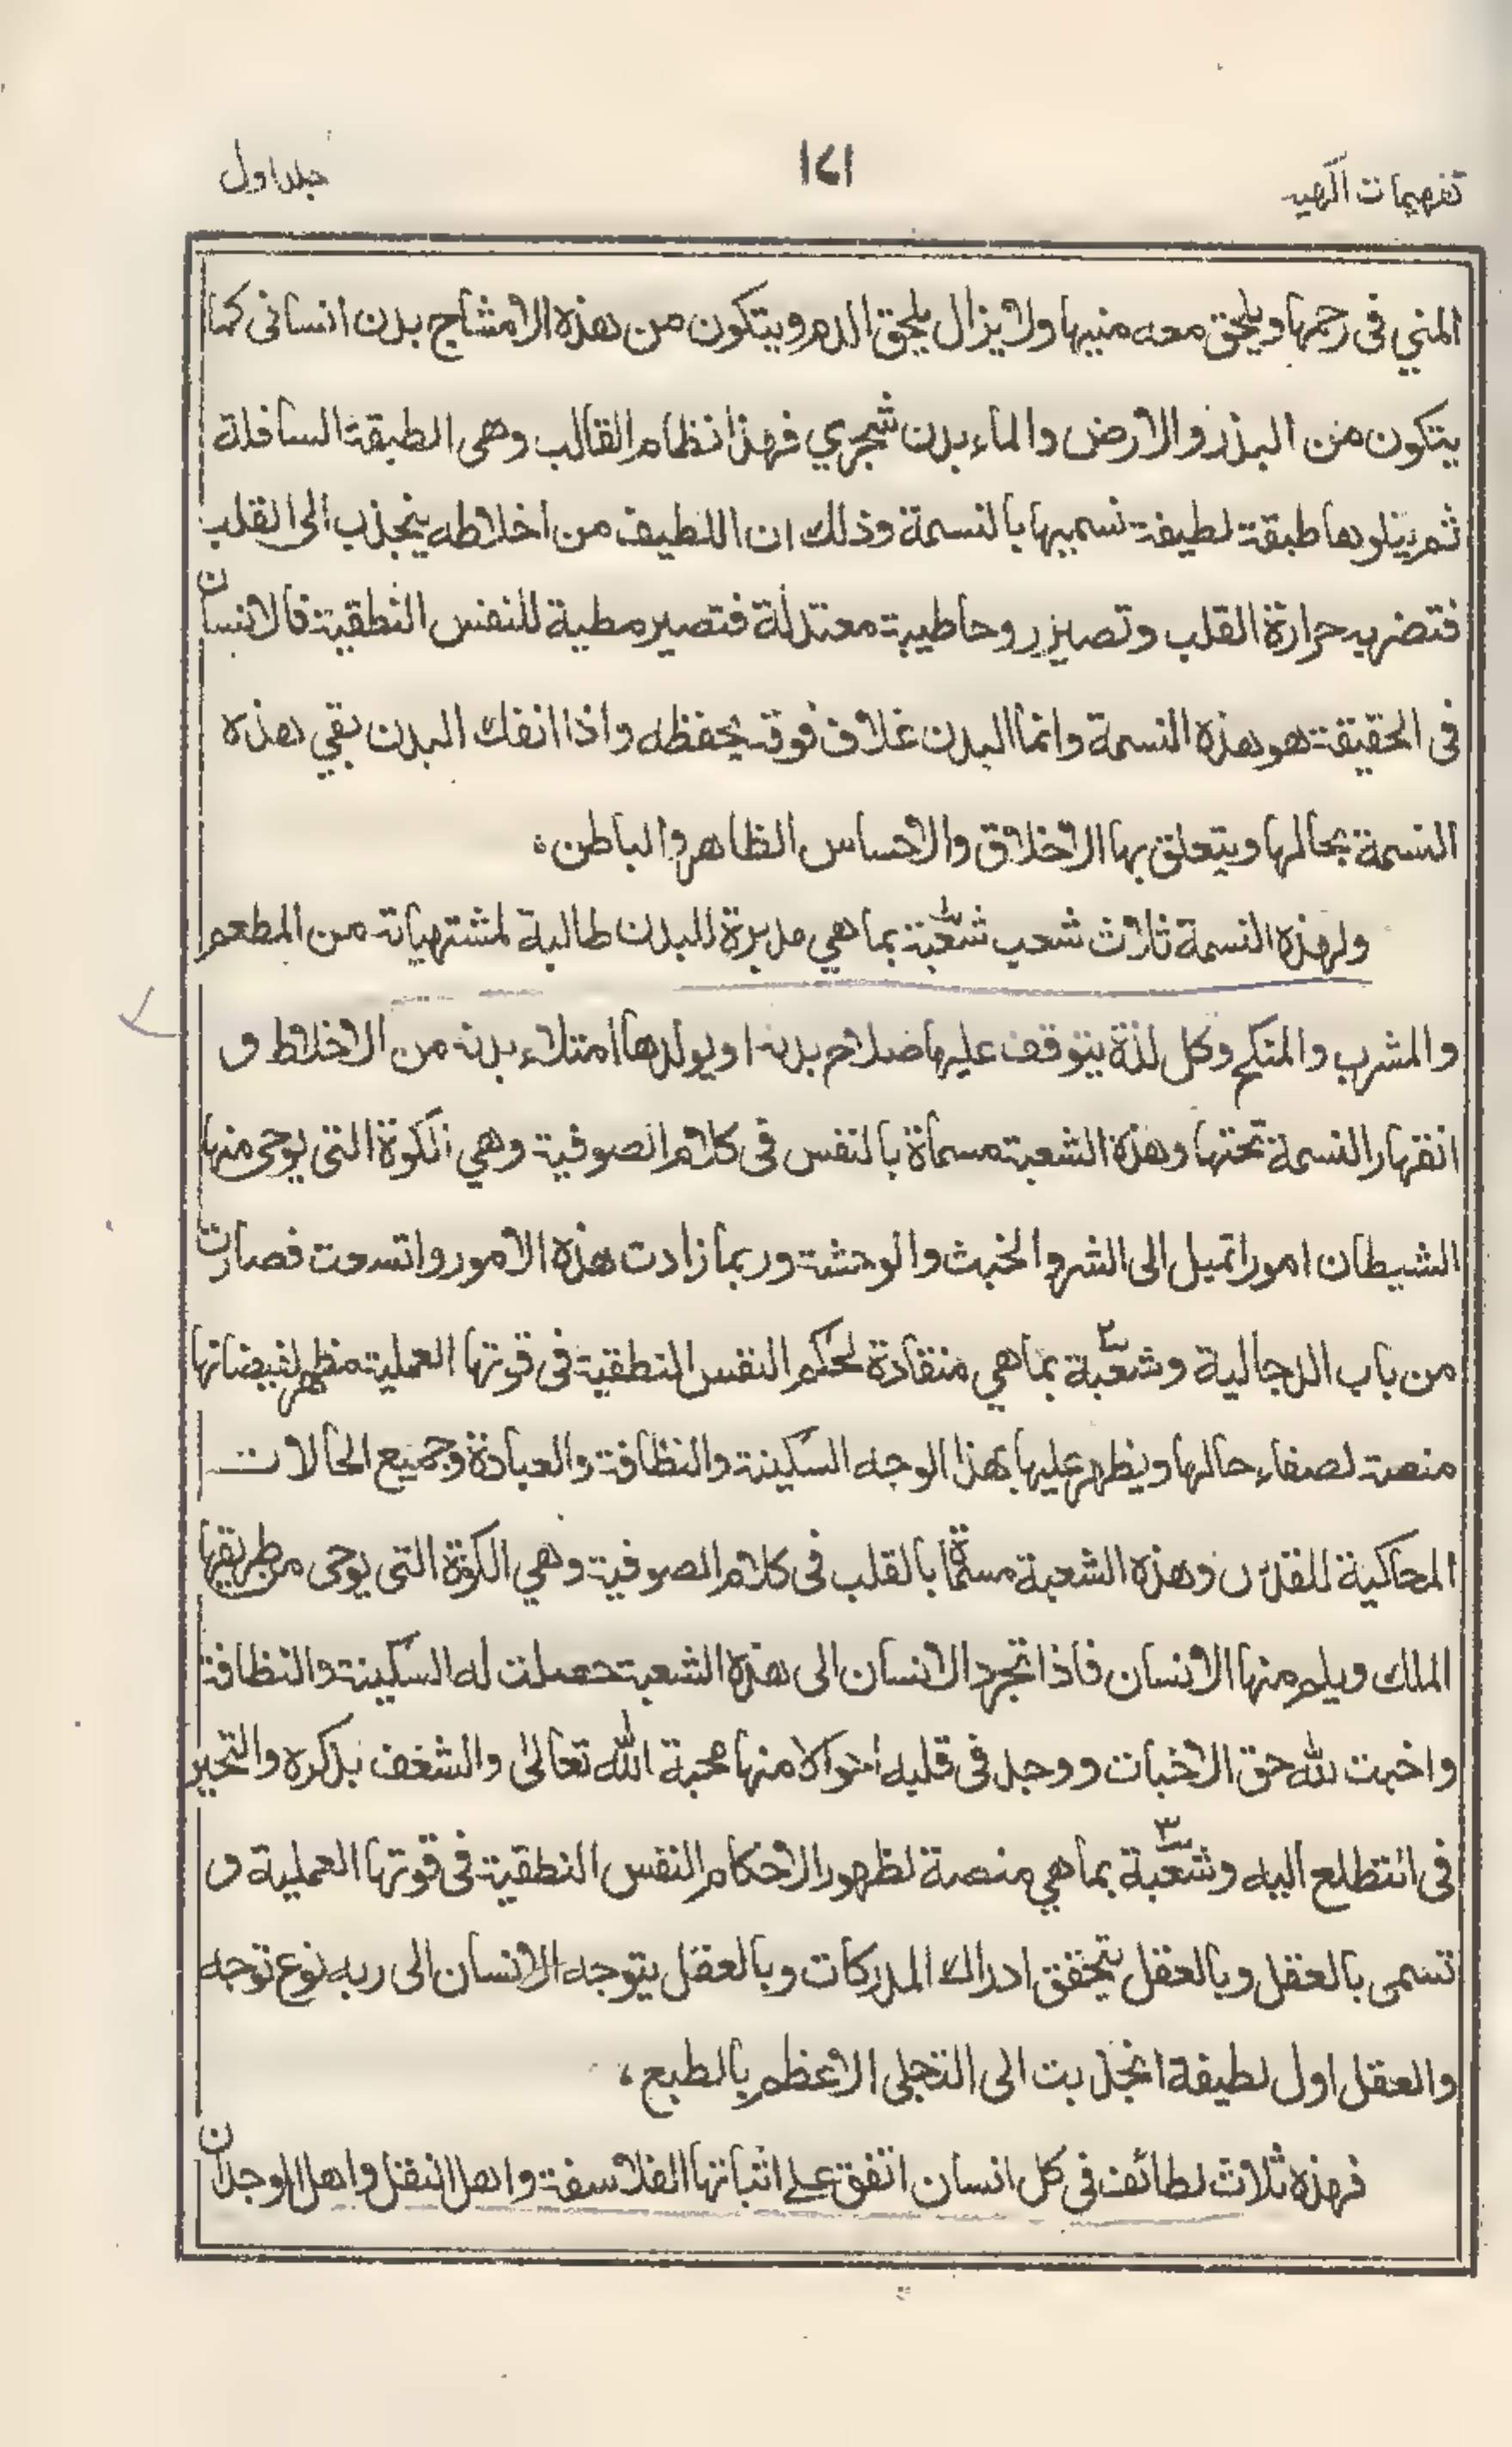 تفهيمات الٰهيه ١٧١ جلد اول
المني في رحمها ويلحق معه منيها ولا يزال يلحق الدم ويتكون من هذه الامشاج بدن انساني كما
يتكون من البذر والارض والماء بدن شجري فهذا نظام القالب وهى الطبقة السافلة
ثم يتلوها طبقة لطيفة نسميها بالنسمة وذلك ان اللطيف من اخلاطه ينجذب الى القلب
فتضربه حرارة القلب وتصير روحا طيبة معتدلة فتصير مطية للنفس النطقية فالانسان
فى الحقيقة هو هذه النسمة وانما البدن غلاف فوقه يحفظه واذا انفك البدن بقي هذه
النسمة بحالها ويتعلق بها الاخلاق والاحساس الظاهر والباطن ۰
ولهذه النسمة ثلاث شعب شعبة بما هي مدبرة للبدن طالبة لمشتهياته من المطعم
والمشرب والمنكح وكل لذة يتوقف عليها صلاح بدنه او يولدها امتلاء بدنه من الاخلاط و
انقهار النسمة تحتها وهذه الشعبة مسماة بالنفس فى كلام الصوفية وهي الكوة التى يوحى منها
الشيطان امورا تميل الى الشر والخبث والوحشة وربما زادت هذه الامور واتسعت فصارت
من باب الدجالية وشعبة ٢ بما هي منقادة لحكم النفس النطقية فى قوتها العملية مظهر لفيضانها
منصة لصفاء حالها ويظهر عليها بهذا الوجه السكينة والنظافة والعبادة وجميع الحالات
المحاكية للقدس وهذه الشعبة مسماة بالقلب فى كلام الصوفية وهي الكوة التى يوحى من طريقها
الملك ويلهم منها الانسان فاذا تجرد الانسان الى هذه الشعبة حصلت له السكينة والنظافة
واخبت لله حق الاخبات ووجد فى قلبه احوالا منها محبة الله تعالىٰ والشغف بذكره والتحير
فى التطلع اليه وشعبة ٣ بما هي منصة لظهور الاحكام النفس النطقية فى قوتها العملية و
تسمى بالعقل وبالعقل يتحقق ادراك المدركات وبالعقل يتوجه الانسان الى ربه نوع توجه
والعقل اول لطيفة انجذبت الى التجلى الاعظم بالطبع ،
فهذه ثلاث لطائف فى كل انسان اتفق على اثباتها الفلاسفة واهل النقل واهل الوجدان